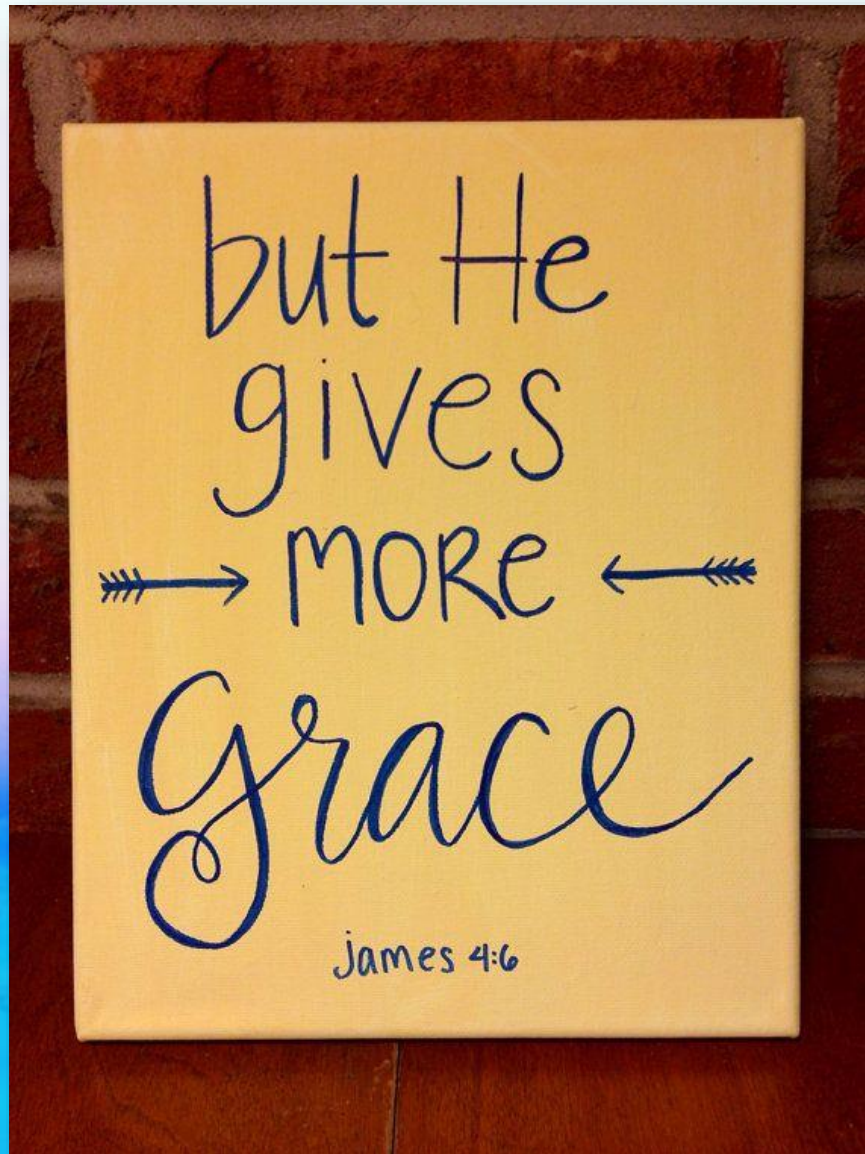 but He
gives
MORe
Grace
james 4:6